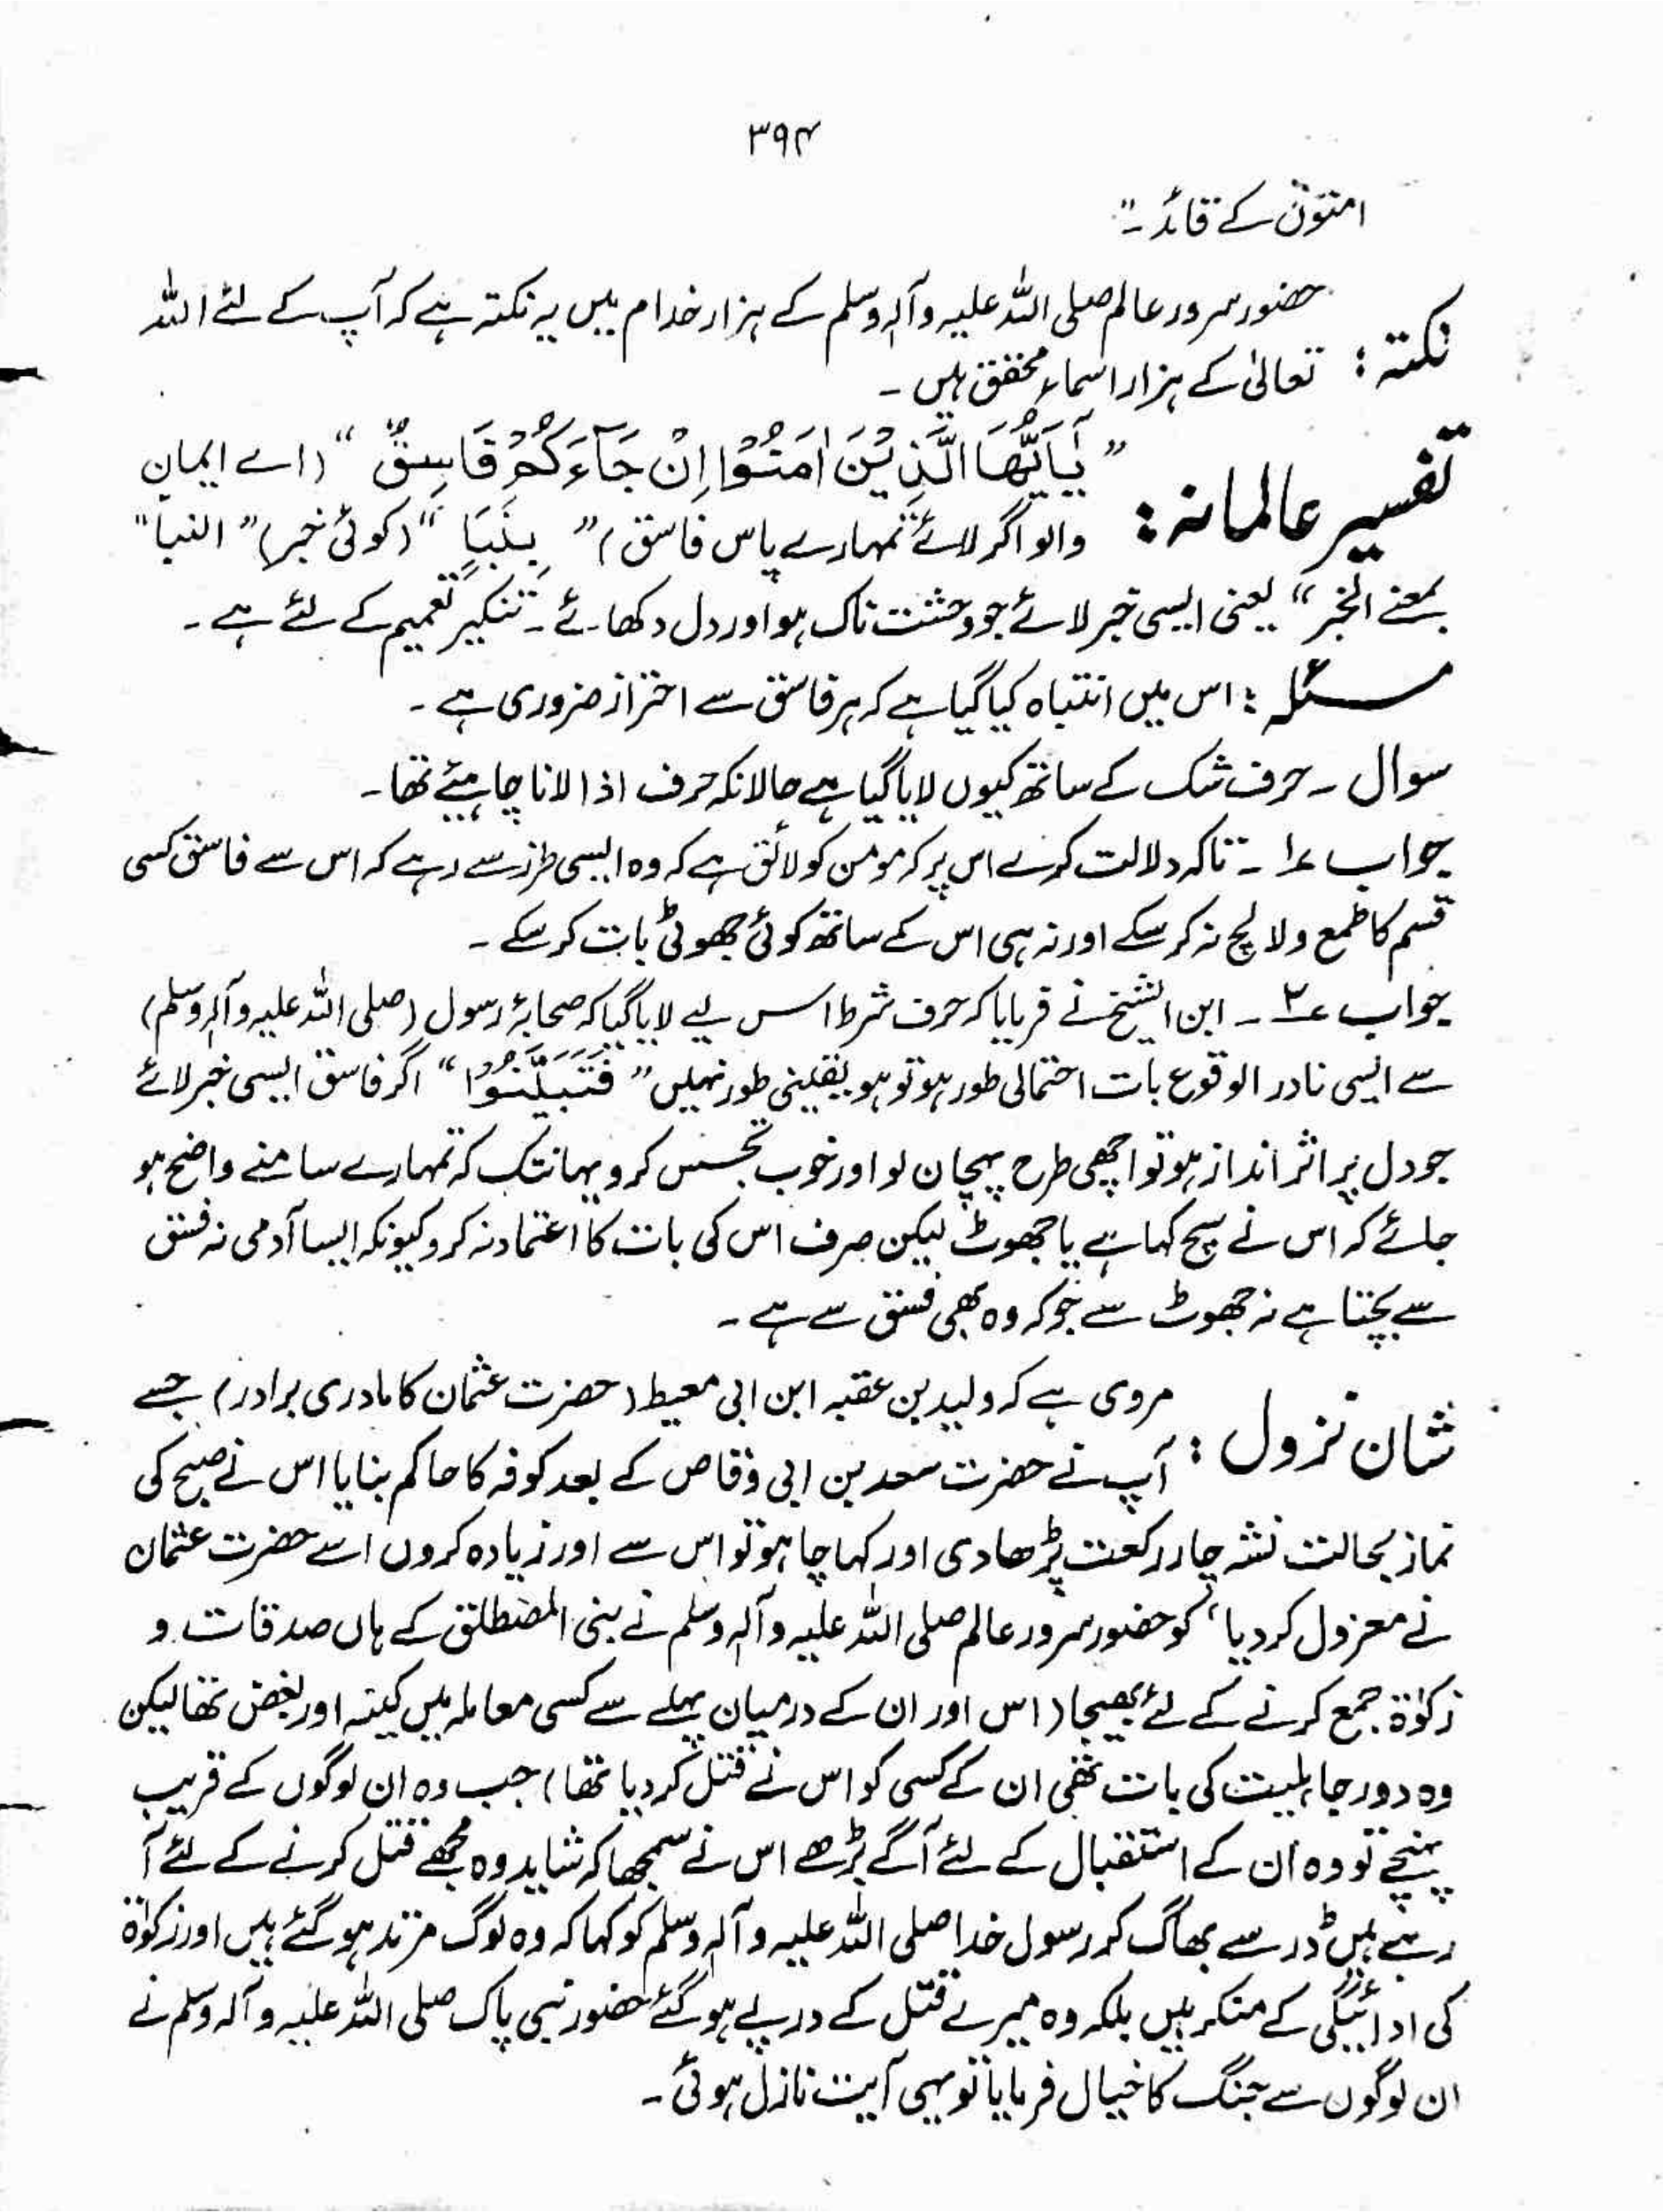 ۳۹۴
امتوں کے قائد۔"
نکتہ: حضور سرور عالم صلی اللہ علیہ وآلہ وسلم کے ہزار خدام میں یہ نکتہ ہے کہ آپ کے لئے اللہ
تعالیٰ کے ہزار اسماء محقق ہیں۔
تفسیر عالمانہ: "یٰٓاَیُّهَا الَّذِیْنَ اٰمَنُوْٓا اِنْ جَآءَكُمْ فَاسِقٌۢ" (اے ایمان
والو اگر لائے تمہارے پاس فاسق) "بِنَبَاٍ" (کوئی خبر) "النبأ"
بمعنے الخبر" یعنی ایسی خبر لائے جو وحشت ناک ہو اور دل دکھائے۔ تنکیر تعمیم کے لئے ہے۔
مسئلہ: اس میں انتباہ کیا گیا ہے کہ ہر فاسق سے احتراز ضروری ہے۔
سوال۔ حرف شک کے ساتھ کیوں لایا گیا ہے حالانکہ حرف اذا لانا چاہیئے تھا۔
جواب ۱؎۔ تاکہ دلالت کرے اس پر کہ مومن کو لائق ہے کہ وہ ایسی طرز سے رہے کہ اس سے فاسق کسی
قسم کا طمع ولالچ نہ کر سکے اور نہ ہی اس کے ساتھ کوئی جھوٹی بات کر سکے۔
جواب ۲؎۔ ابن الشیخ نے فرمایا کہ حرف شرط اس لیے لایا گیا کہ صحابۂ رسول (صلی اللہ علیہ وآلہ وسلم)
سے ایسی نادر الوقوع بات احتمالی طور ہو تو ہو یقینی طور نہیں "فَتَبَیَّنُوْٓا" اگر فاسق ایسی خبر لائے
جو دل پر اثر انداز ہو تو اچھی طرح پہچان لو اور خوب تجسس کرو یہانتک کہ تمہارے سامنے واضح ہو
جائے کہ اس نے سچ کہا ہے یا جھوٹ لیکن صرف اس کی بات کا اعتماد نہ کرو کیونکہ ایسا آدمی نہ فسق
سے بچتا ہے نہ جھوٹ سے جو کہ وہ بھی فسق سے ہے۔
شان نزول: مروی ہے کہ ولید بن عقبہ ابن ابی معیط (حضرت عثمان کا مادری برادر) جسے
آپ نے حضرت سعد بن ابی وقاص کے بعد کوفہ کا حاکم بنایا اس نے صبح کی
نماز بحالت نشہ چار رکعت پڑھا دی اور کہا چاہو تو اس سے اور زیادہ کروں اسے حضرت عثمان
نے معزول کر دیا' کو حضور سرور عالم صلی اللہ علیہ وآلہ وسلم نے بنی المصطلق کے ہاں صدقات و
زکوٰۃ جمع کرنے کے لئے بھیجا (اس اور ان کے درمیان پہلے سے کسی معاملہ میں کینہ اور بغض تھا لیکن
وہ دور جاہلیت کی بات تھی ان کے کسی کو اس نے قتل کر دیا تھا) جب وہ ان لوگوں کے قریب
پہنچے تو وہ ان کے استقبال کے لئے آگے بڑھے اس نے سمجھا کہ شاید وہ مجھے قتل کرنے کے لئے آ
رہے ہیں ڈر سے بھاگ کر رسول خدا صلی اللہ علیہ وآلہ وسلم کو کہا کہ وہ لوگ مرتد ہو گئے ہیں اور زکوٰۃ
کی ادائیگی کے منکر ہیں بلکہ وہ میرے قتل کے درپے ہو گئے حضور نبی پاک صلی اللہ علیہ وآلہ وسلم نے
ان لوگوں سے جنگ کا خیال فرمایا تو یہی آیت نازل ہوئی۔